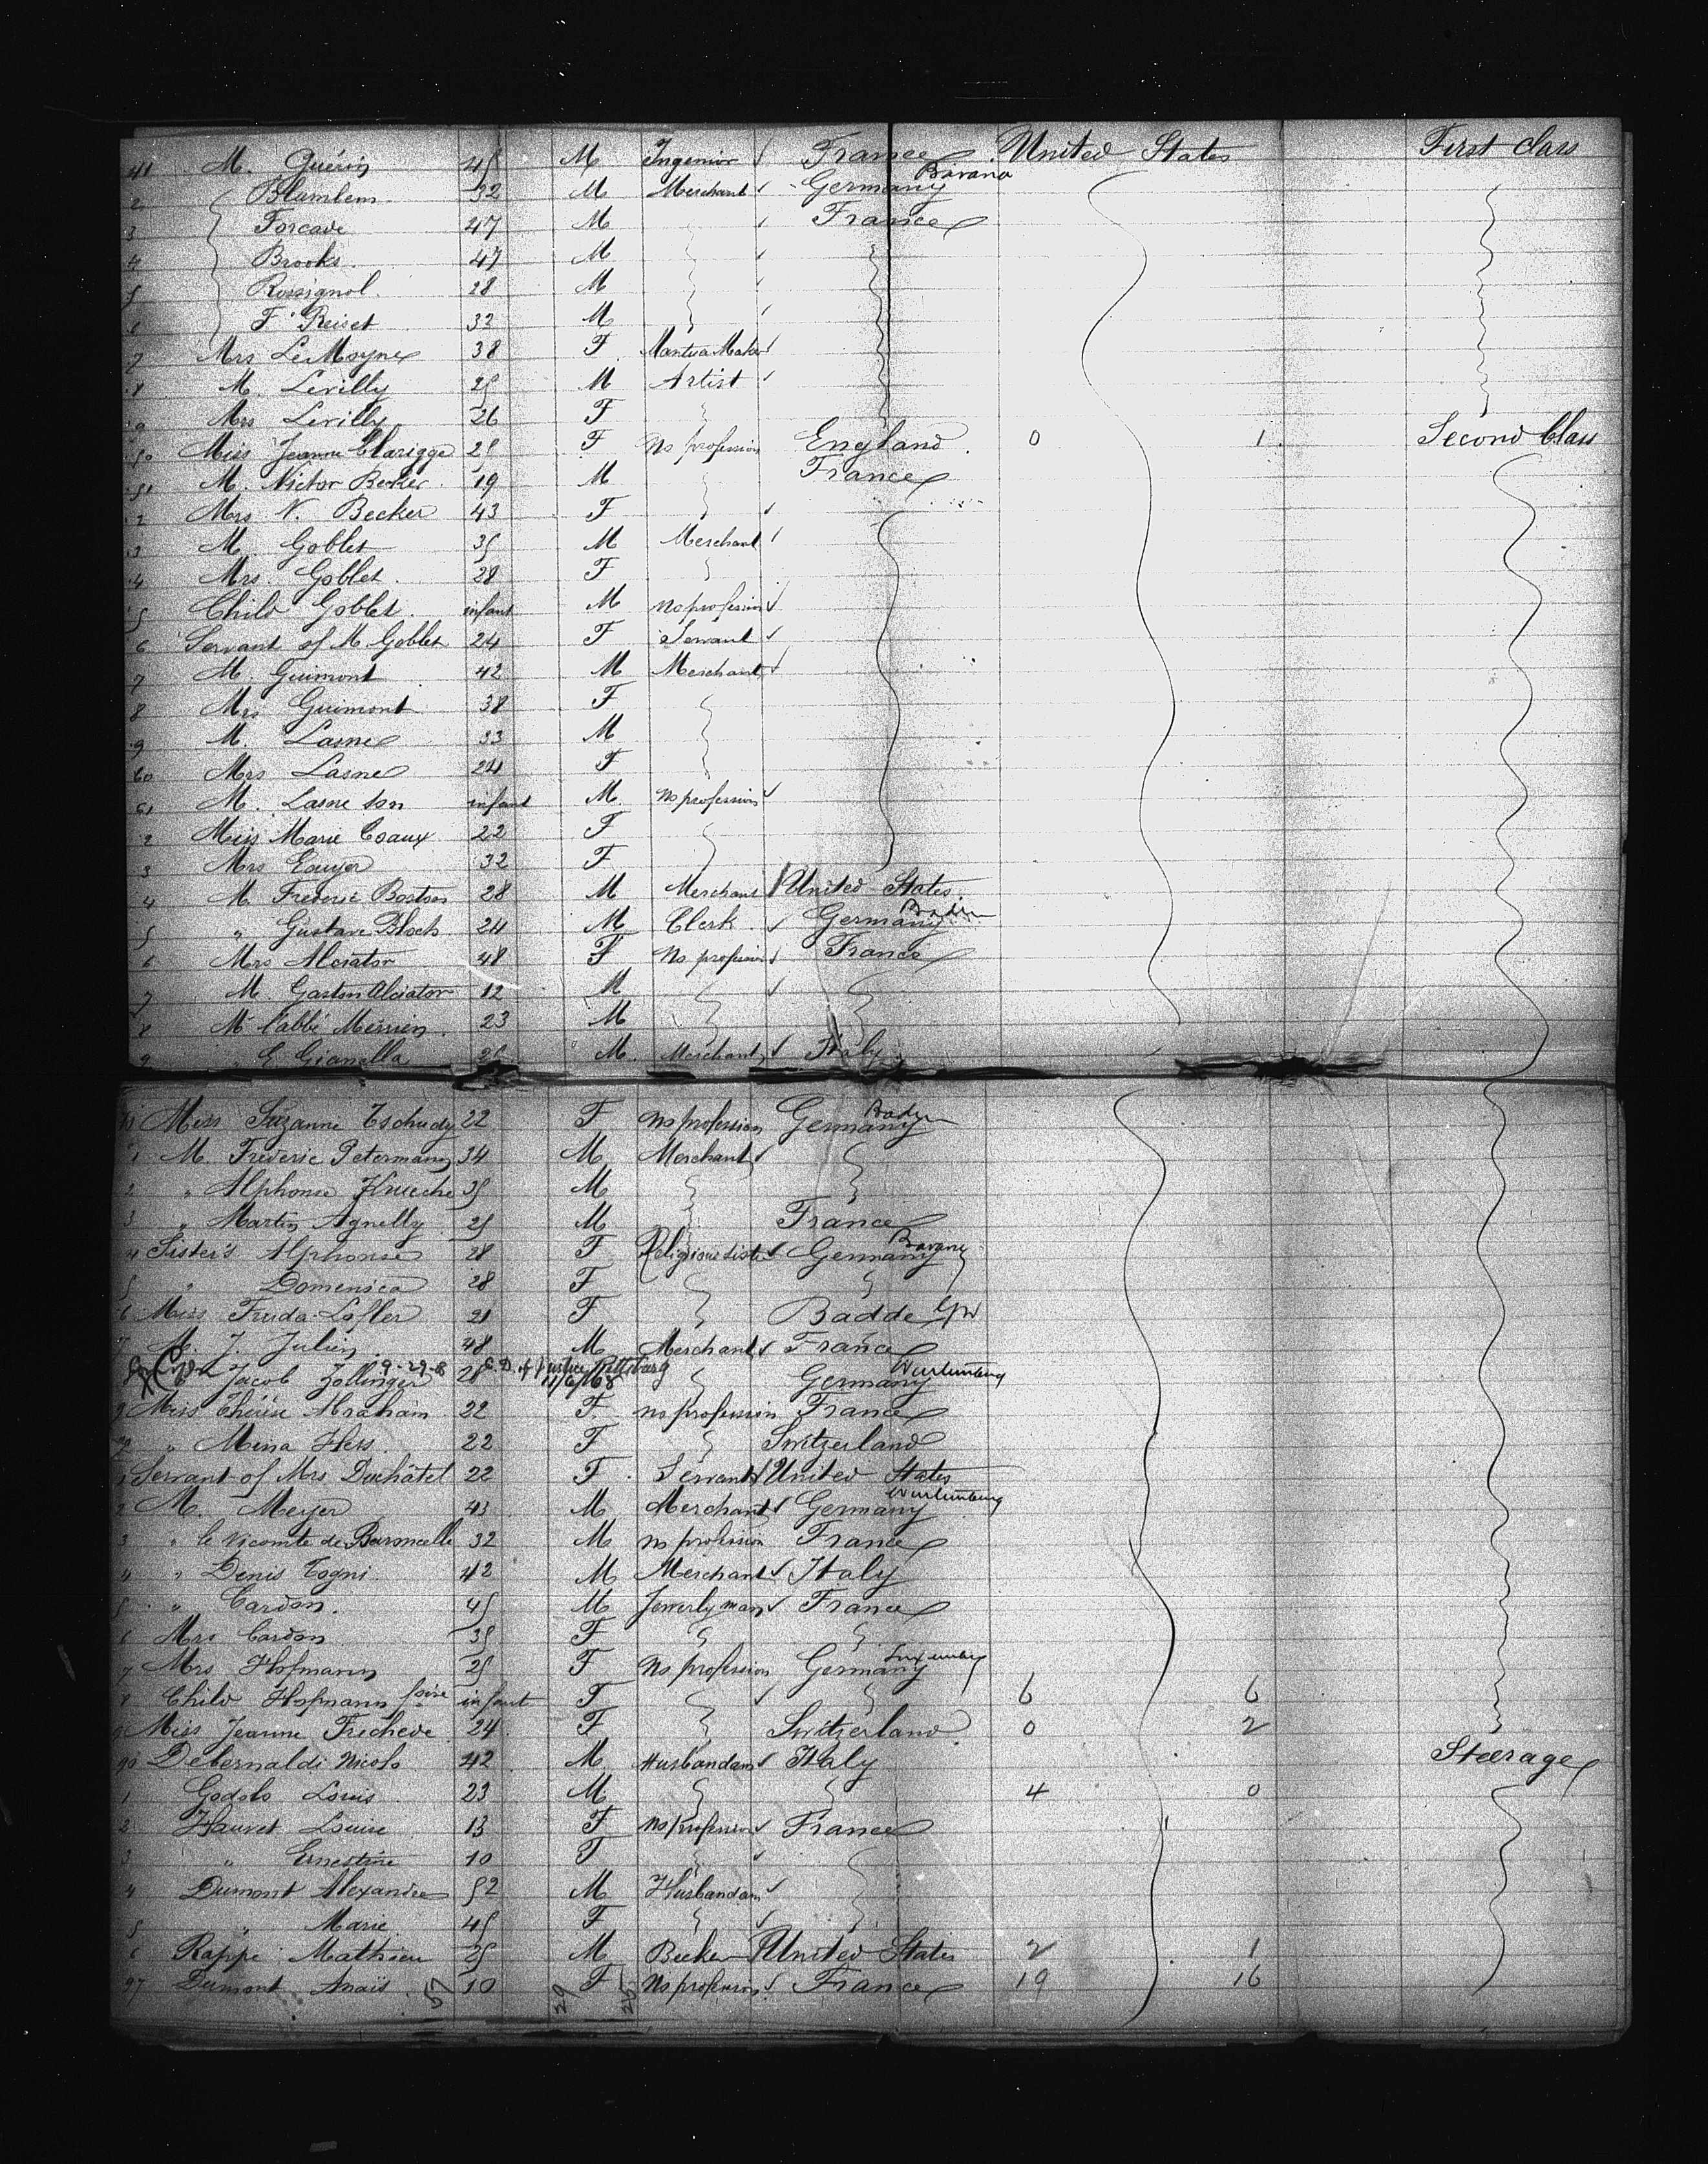 41 M. Guérin 45 M Ingenior France United States First Class
2 Blumlem 32 M Merchant Germany Bavaria
3 Forcade 47 M France
4 Brooks 47 M
5 Rossignol 28 M
6 F. Reiset 32 M
7 Mrs LeMoyne 38 F Mantua Maker
8 M. Levilly 25 M Artist
9 Mrs Levilly 26 F
50 Miss Jeanne Clarigge 25 F No profession England 0 1 Second Class
51 M. Victor Becker 19 M France
2 Mrs V. Becker 43 F
3 M. Goblet 35 M Merchant
4 Mrs. Goblet 28 F
5 Child Goblet infant M no profession
6 Servant of M Goblet 24 F Servant
7 M. Guimont 42 M Merchant
8 Mrs Guimont 38 F
9 M. Lasne 33 M
60 Mrs Lasne 24 F
61 M. Lasne son infant M. no profession
2 Miss Marie Coaux 22 F
3 Mrs Couyer 32 F
4 M Frederic Bostson 28 M Merchant United States
5 " Gustave Bloch 24 M Clerk Germany Baden
6 Mrs Alciator 48 F No profession France
7 M. Gaston Alciator 12 M
8 M l'abbé Merrien 23 M
9 " E Gianella 25 M. Merchant Italy
Miss Suzanne Tschudy 22 F no profession Germany Baden
1 M. Frederic Petermann 34 M Merchant
2 " Alphonse 35 M
3 " Martin Agnelly 25 M France
4 Sister's Alphonse 28 F Religious sister Germany Bavaria
5 " Domenica 28 F
6 Miss Frida Lofler 21 F Badde
7 M. J. Julien 48 M Merchant France
9-29-8 C. D. of Justice Pittsburg
Jacob Zollinger 28 11/6/68 Germany Wurtemberg
9 Miss Thérèse Abraham 22 F no profession France
" Mina Hess 22 F Switzerland
1 Servant of Mrs Duchâtel 22 F Servant United States
2 M. Meyer 43 M Merchant Germany Wurtemberg
3 " le Vicomte de Baroncelle 32 M no profession France
4 " Denis Togni 42 M Merchant Italy
5 " Cardon 45 M Jewerly man France
6 Mrs Cardon 35 F
7 Mrs Hofmann 25 F No profession Germany Luxemburg
8 Child Hofmann infant F 6 6
9 Miss Jeanne Frechede 24 F Switzerland 0 2
90 Debernaldi Nicolo 42 M Husbandam Italy Steerage
1 Godolo Louis 23 M 4 0
2 Hauvet Louise 13 F No profession France
3 " Ernestine 10 F
4 Dumont Alexandre 52 M Husbandam
5 " Marie 45 F
6 Rappe Mathieu 25 M Becker United States 2 1
97 Dumont Anaïs 10 F No profession France 19 16
57 29 25